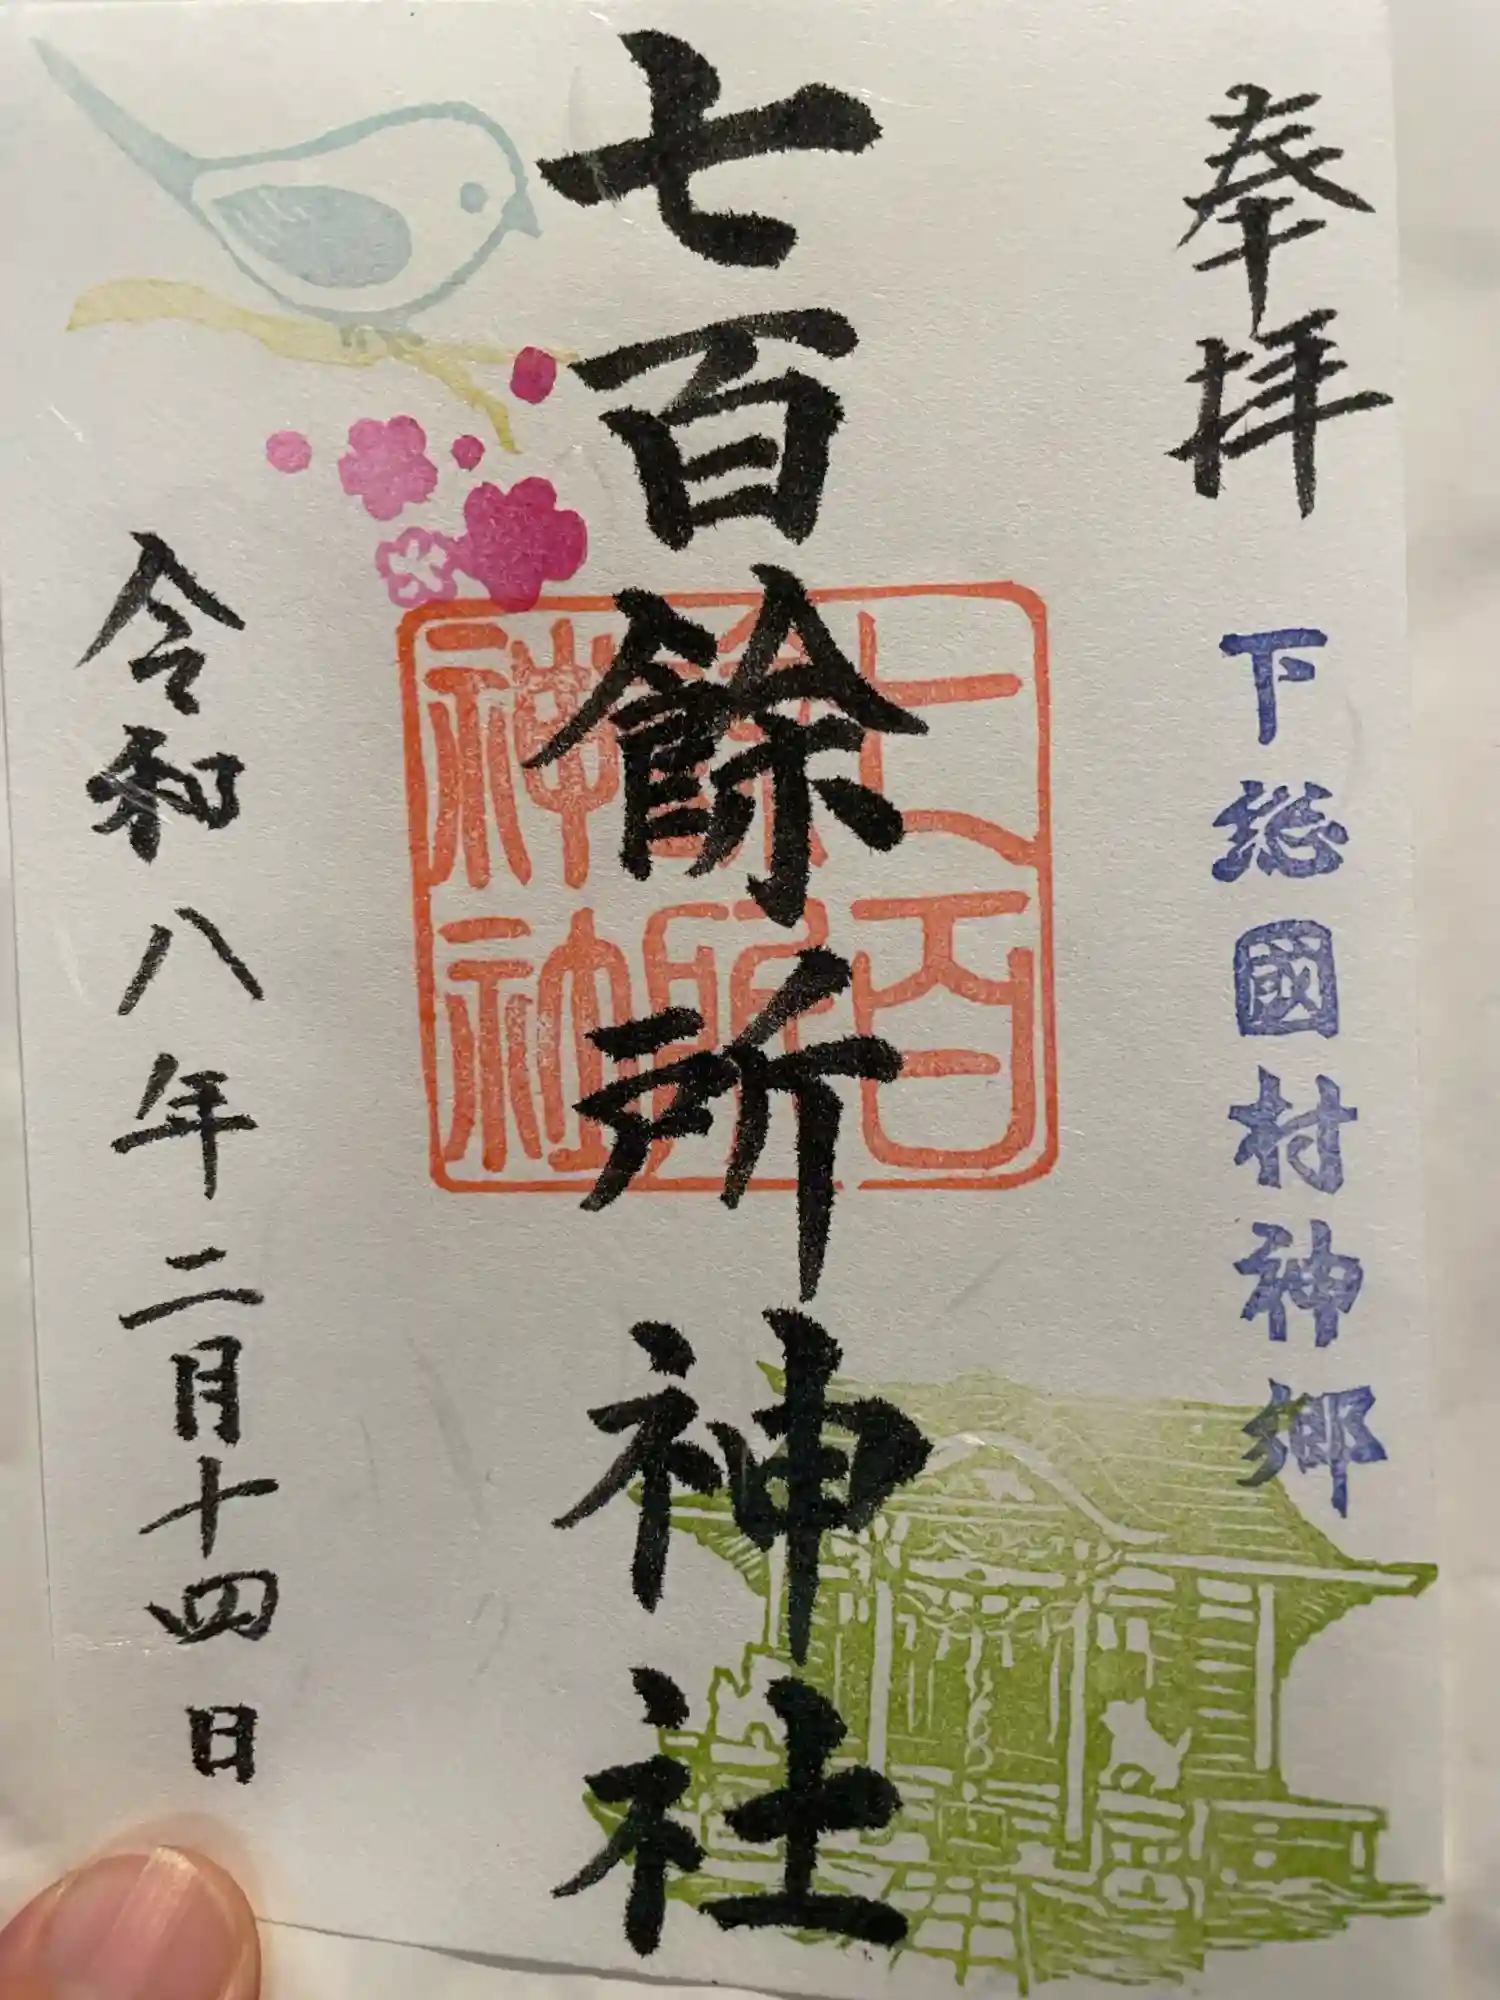 奉拝
下総國村神郷
七百餘所神社
七百
餘所
神社
令和八年二月十四日